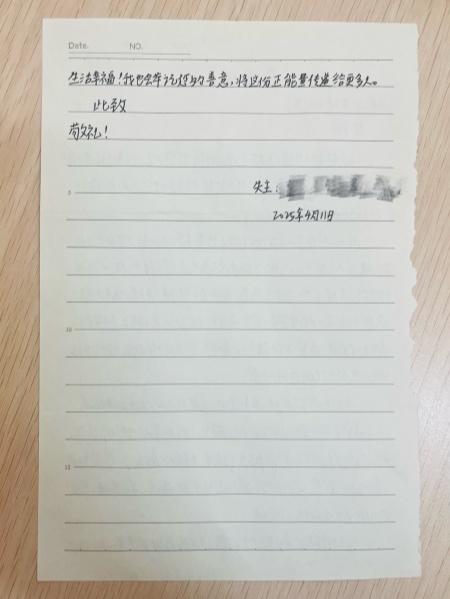 Date. NO.
生活幸福！我也会牢记这份善意，将这份正能量传递给更多人。
此致
敬礼！
5
失主：
2025年9月11日
10
15